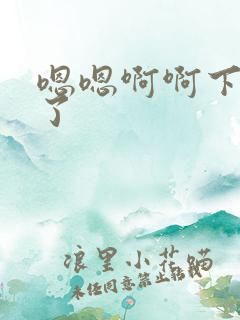 嗯嗯啊啊下
了
浪里小花喵
未经同意禁止转载